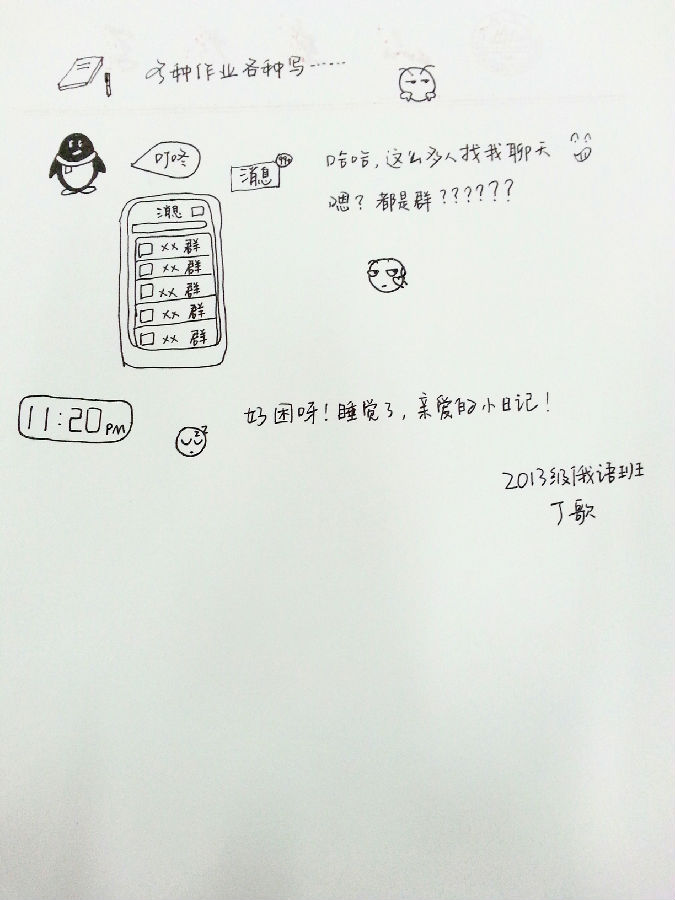 各种作业各种写……
叮咚
消息 99+
哈哈，这么多人找我聊天
嗯？都是群??????
消息
xx 群
xx 群
xx 群
xx 群
xx 群
11:20 PM
zz
好困呀！睡觉了，亲爱的小日记！
2013级俄语班
丁歌